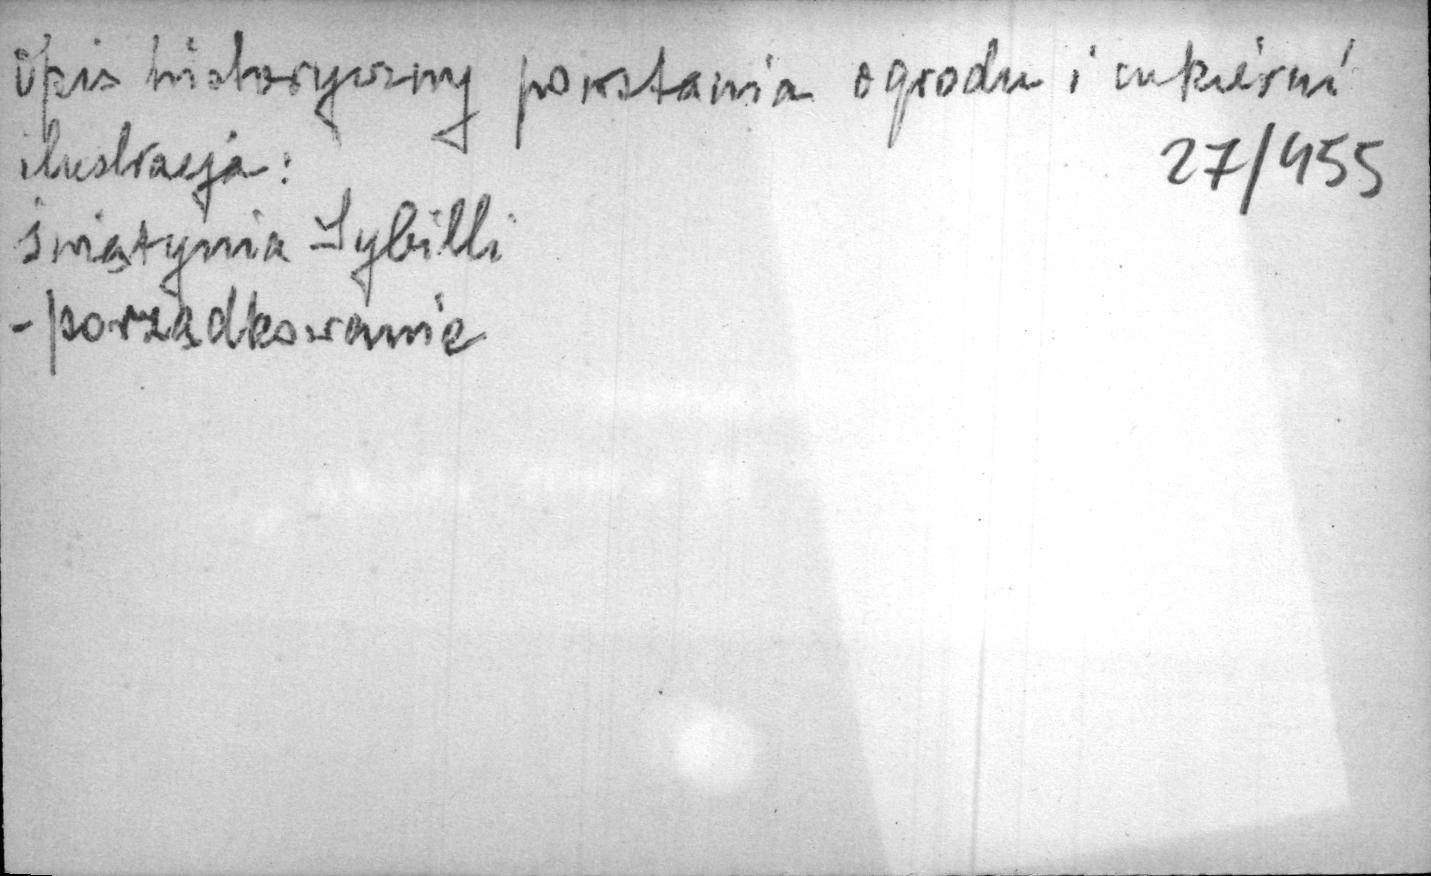 Opis historyczny powstania ogrodu i cukierni
ilustracja: 27/455
świątynia Sybilli
- porządkowanie